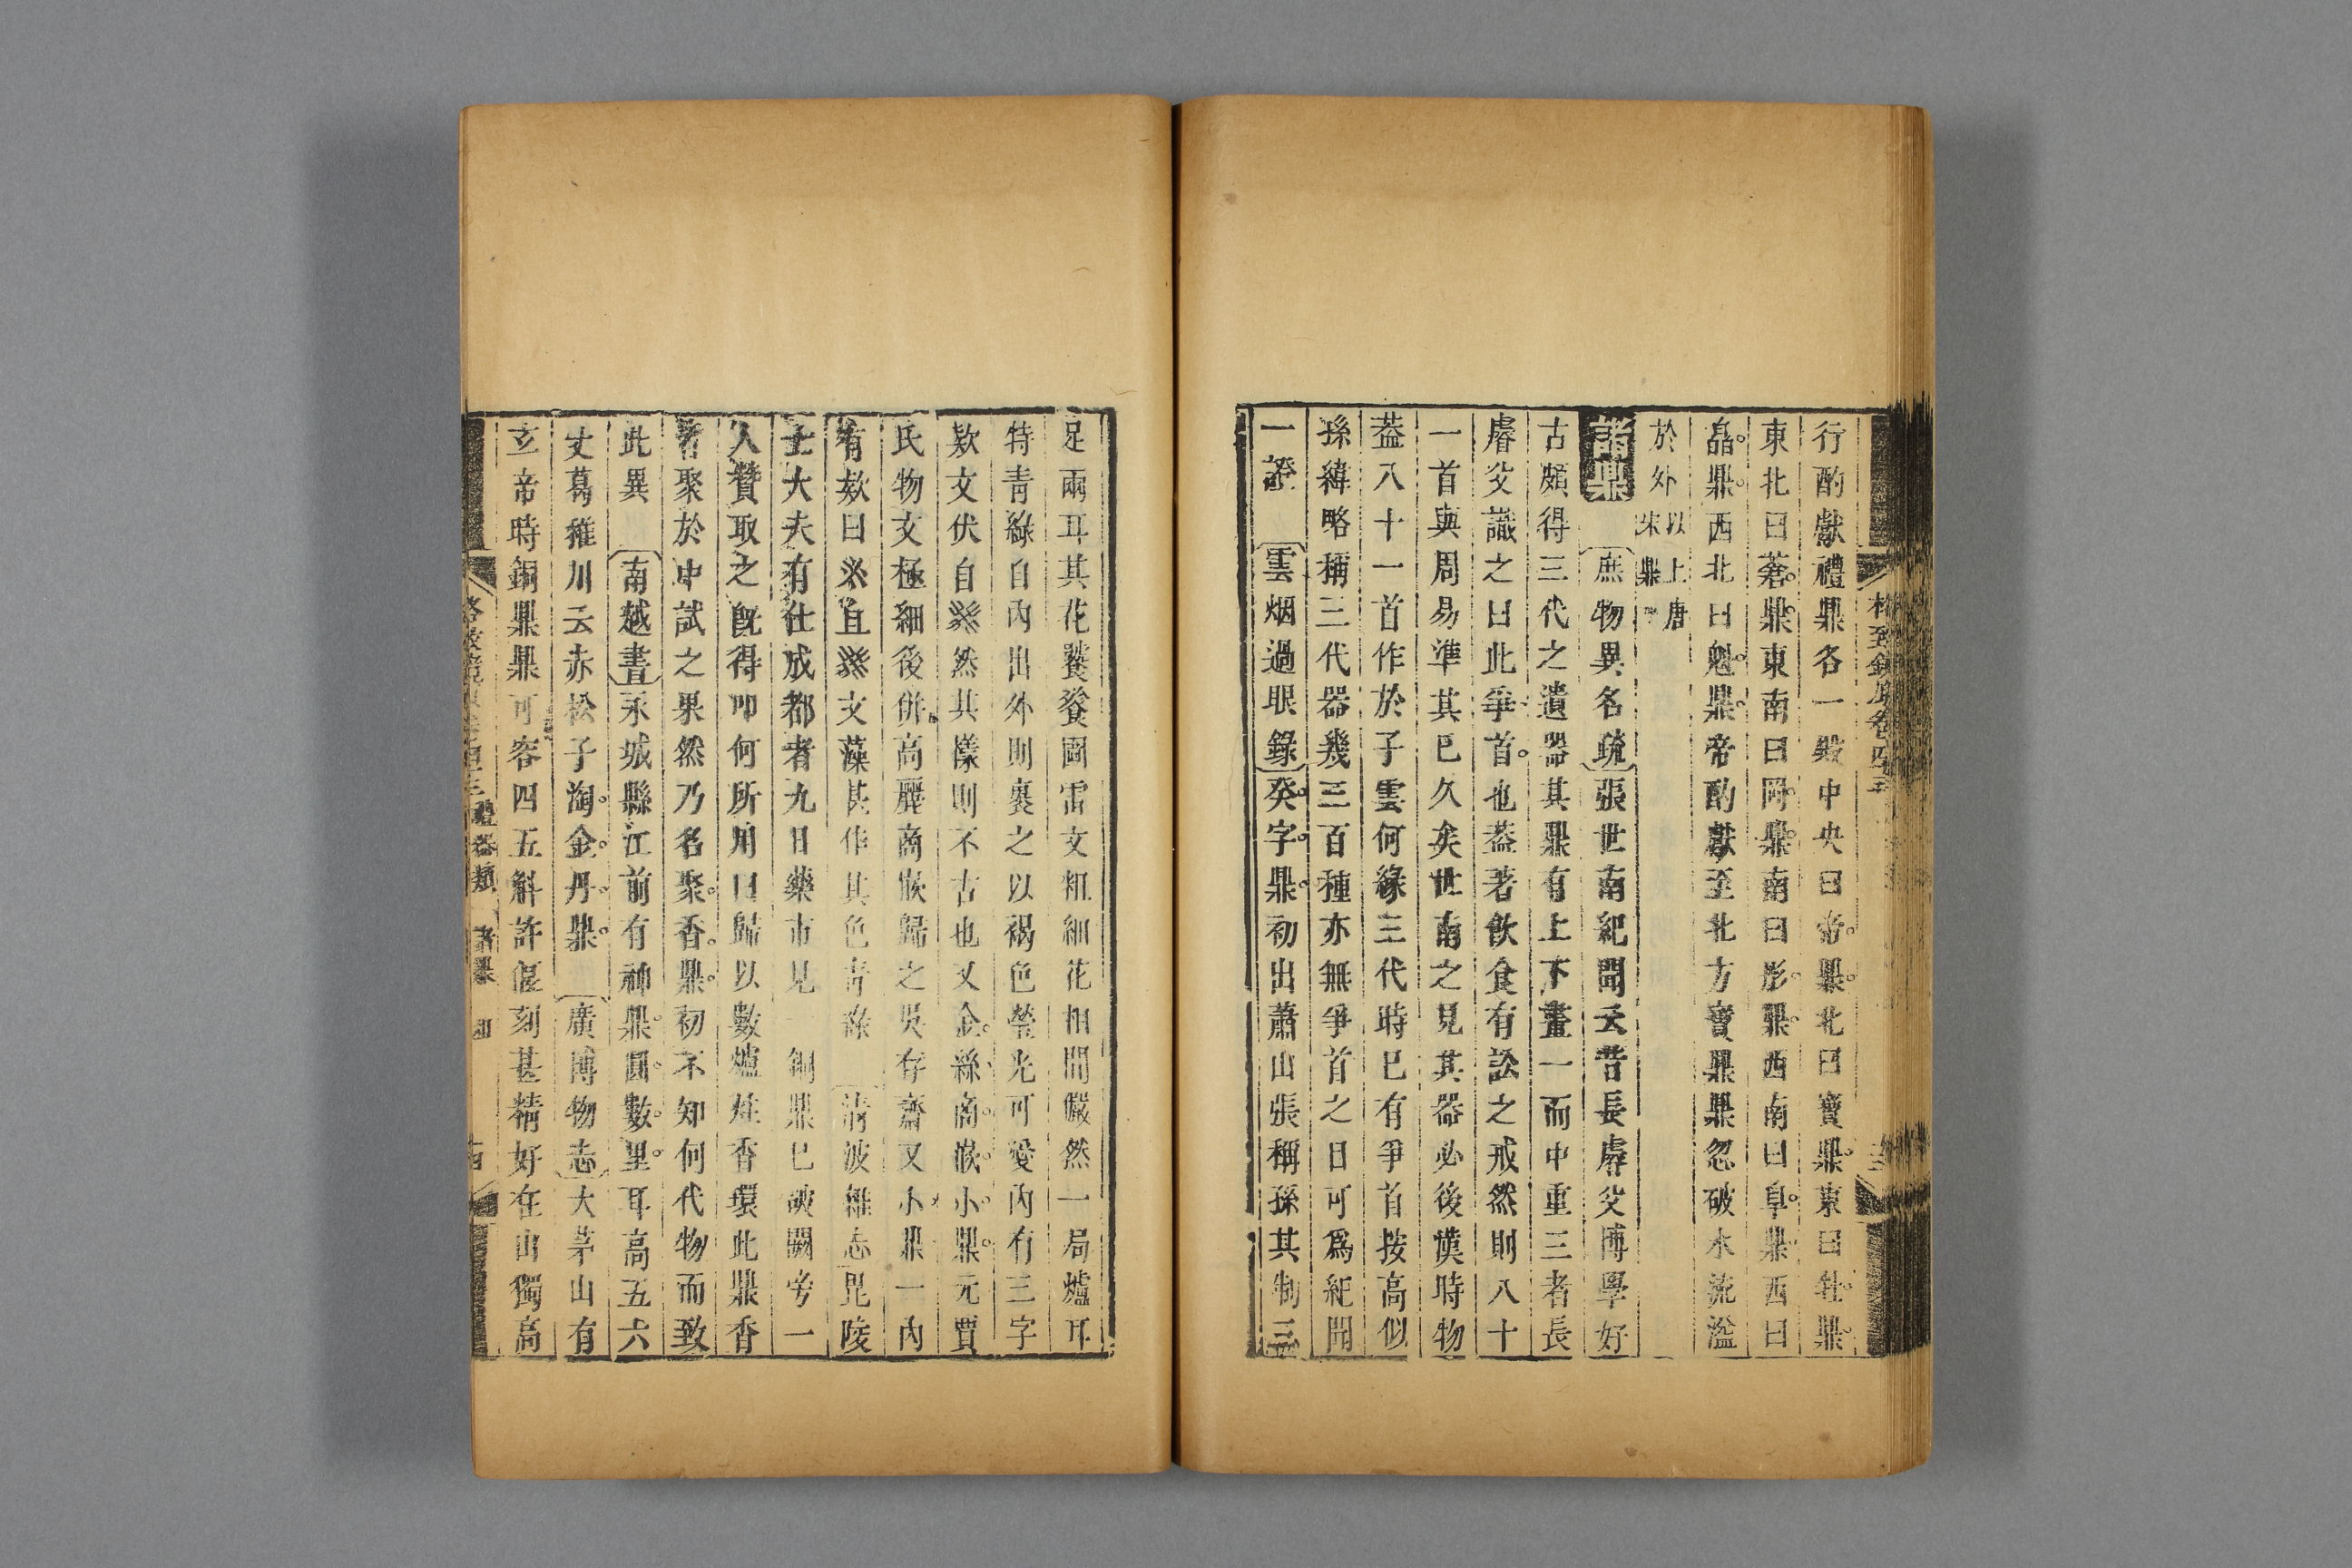 行酌獻禮鼎各一殿中央曰帝鼎北曰寶鼎東曰牡鼎
東北曰蒼鼎東南曰岡鼎南曰彤鼎西南曰阜鼎西曰
皛鼎西北曰魁鼎帝酌獻至北方寶鼎鼎忽破水流溢
於外以上唐宋鼎
諸鼎 庶物異名疏張世南紀聞云昔長睿父博學好
古頗得三代之遺器其鼎有上下畫一而中重三者長
睿父識之曰此爭首也蓋著飲食有訟之戒然則八十
一首與周易準其已久矣世南之見其器必後漢時物
蓋八十一首作於子雲何緣三代時已有爭首按高似
孫緯略稱三代器幾三百種亦無爭首之日可為紀聞
一證 雲烟過眼錄癸字鼎初出蕭山張稱孫其制三
足兩耳其花饕餮圖雷文粗細花相間儼然一局爐耳
特青綠自內出外則裹之以褐色瑩光可愛內有三字
款文伏自然其樣則不古也又金絲商嵌小鼎元賈
氏物文極細後併高麗商嵌歸之吳存齋又小鼎一內
有款曰且文藻甚佳其色青綠 清波雜志毘陵
士大夫有仕成都者九日藥市見一銅鼎已破闕旁一
人贊取之既得叩何所用曰歸以數爐炷香環此鼎香
者聚於中試之果然乃名聚香鼎初不知何代物而致
此異 南越書永城縣江前有神鼎圓數里耳高五六
丈葛稚川云赤松子淘金丹鼎 廣博物志大茅山有
玄帝時銅鼎鼎可容四五斛許偃刻甚精好在山獨高
格致鏡原卷四十三禮器類 諸鼎